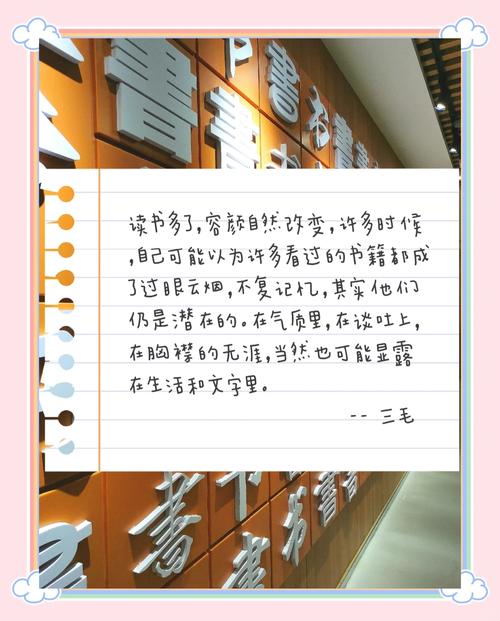 書
书
書
書
书
書
读书多了,容颜自然改变,许多时候
,自己可能以为许多看过的书籍都成
了过眼云烟,不复记忆,其实他们
仍是潜在的。在气质里,在谈吐上,
在胸襟的无涯,当然也可能显露
在生活和文字里。
-- 三毛
書
书
書
書
书
書
書